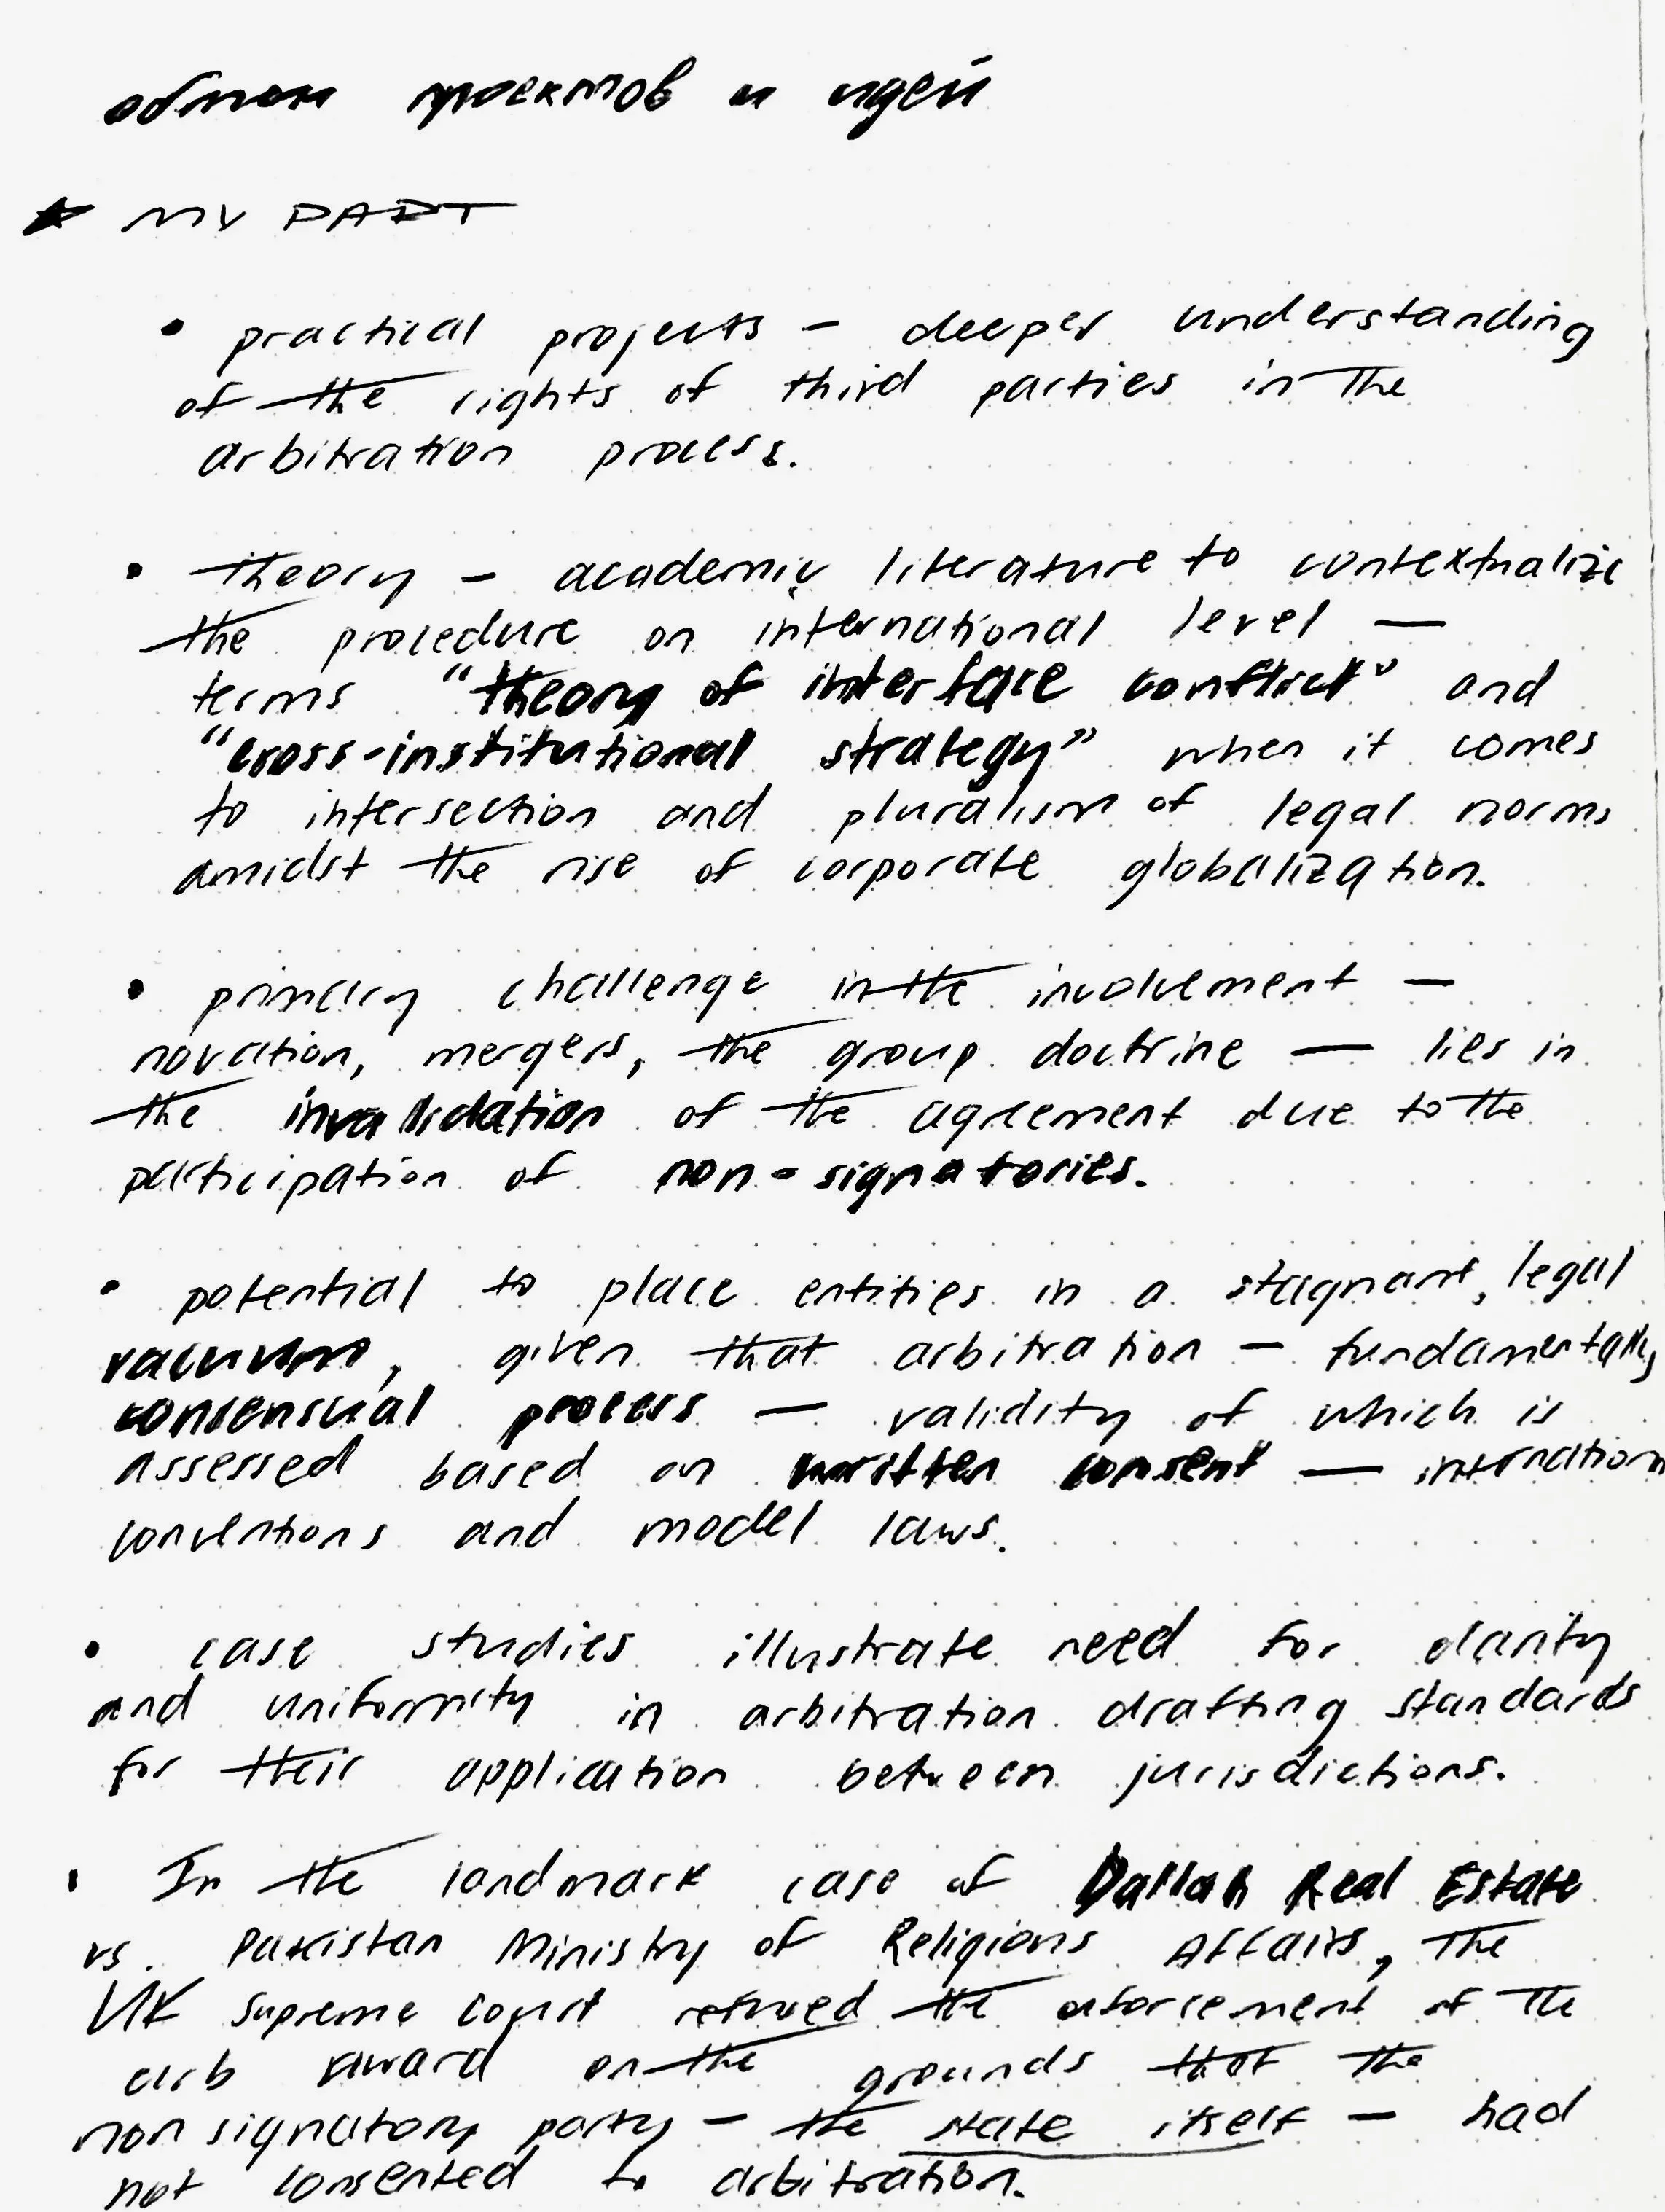 обмен проектов и идей
★ MY PART
• practical projects – deeper understanding
of the rights of third parties in the
arbitration process.
• theory – academic literature to contextualize
the procedure on international level —
terms "theory of interface conflict" and
"cross-institutional strategy" when it comes
to intersection and pluralism of legal norms
amidst the rise of corporate globalization.
• primary challenge in the involvement —
novation, mergers, the group doctrine — lies in
the invalidation of the agreement due to the
participation of non-signatories.
• potential to place entities in a stagnant, legal
vacuum, given that arbitration – fundamentally
consensual process — validity of which is
assessed based on written consent — internation
conventions and model laws.
• case studies illustrate need for clarity
and uniformity in arbitration drafting standards
for their application between jurisdictions.
• In the landmark case of Dallah Real Estate
vs. Pakistan Ministry of Religions Affairs, the
UK Supreme Court refused the enforcement of the
arb award on the grounds that the
non signatory party – the state itself – had
not consented to arbitration.